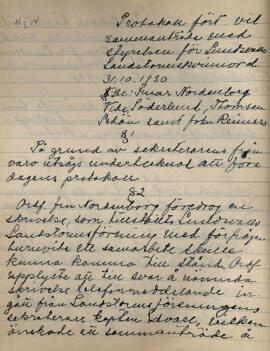 Protokoll fört vid
sammanträde med
styrelsen för Lunds
Landstormskvinnor d.
31.10.1930
Nde: Söderlund, Thomsen
Schön samt fröken Reimers
§1
På grund av sekreterarens från-
varo utsågs undertecknad att föra
dagens protokoll
§2
Ordf. fru Nordenborg föredrog en
skrivelse, som tillställts
Landstormsförening med förfrågan
huruvida ett samarbete skulle
kunna komma till stånd. Ordf.
upplyste att till svar å nämnda
skrivelse telefonmeddelande in-
gått från Landstormsföreningens
sekreterare kapten vilken
önskade ett sammanträde å